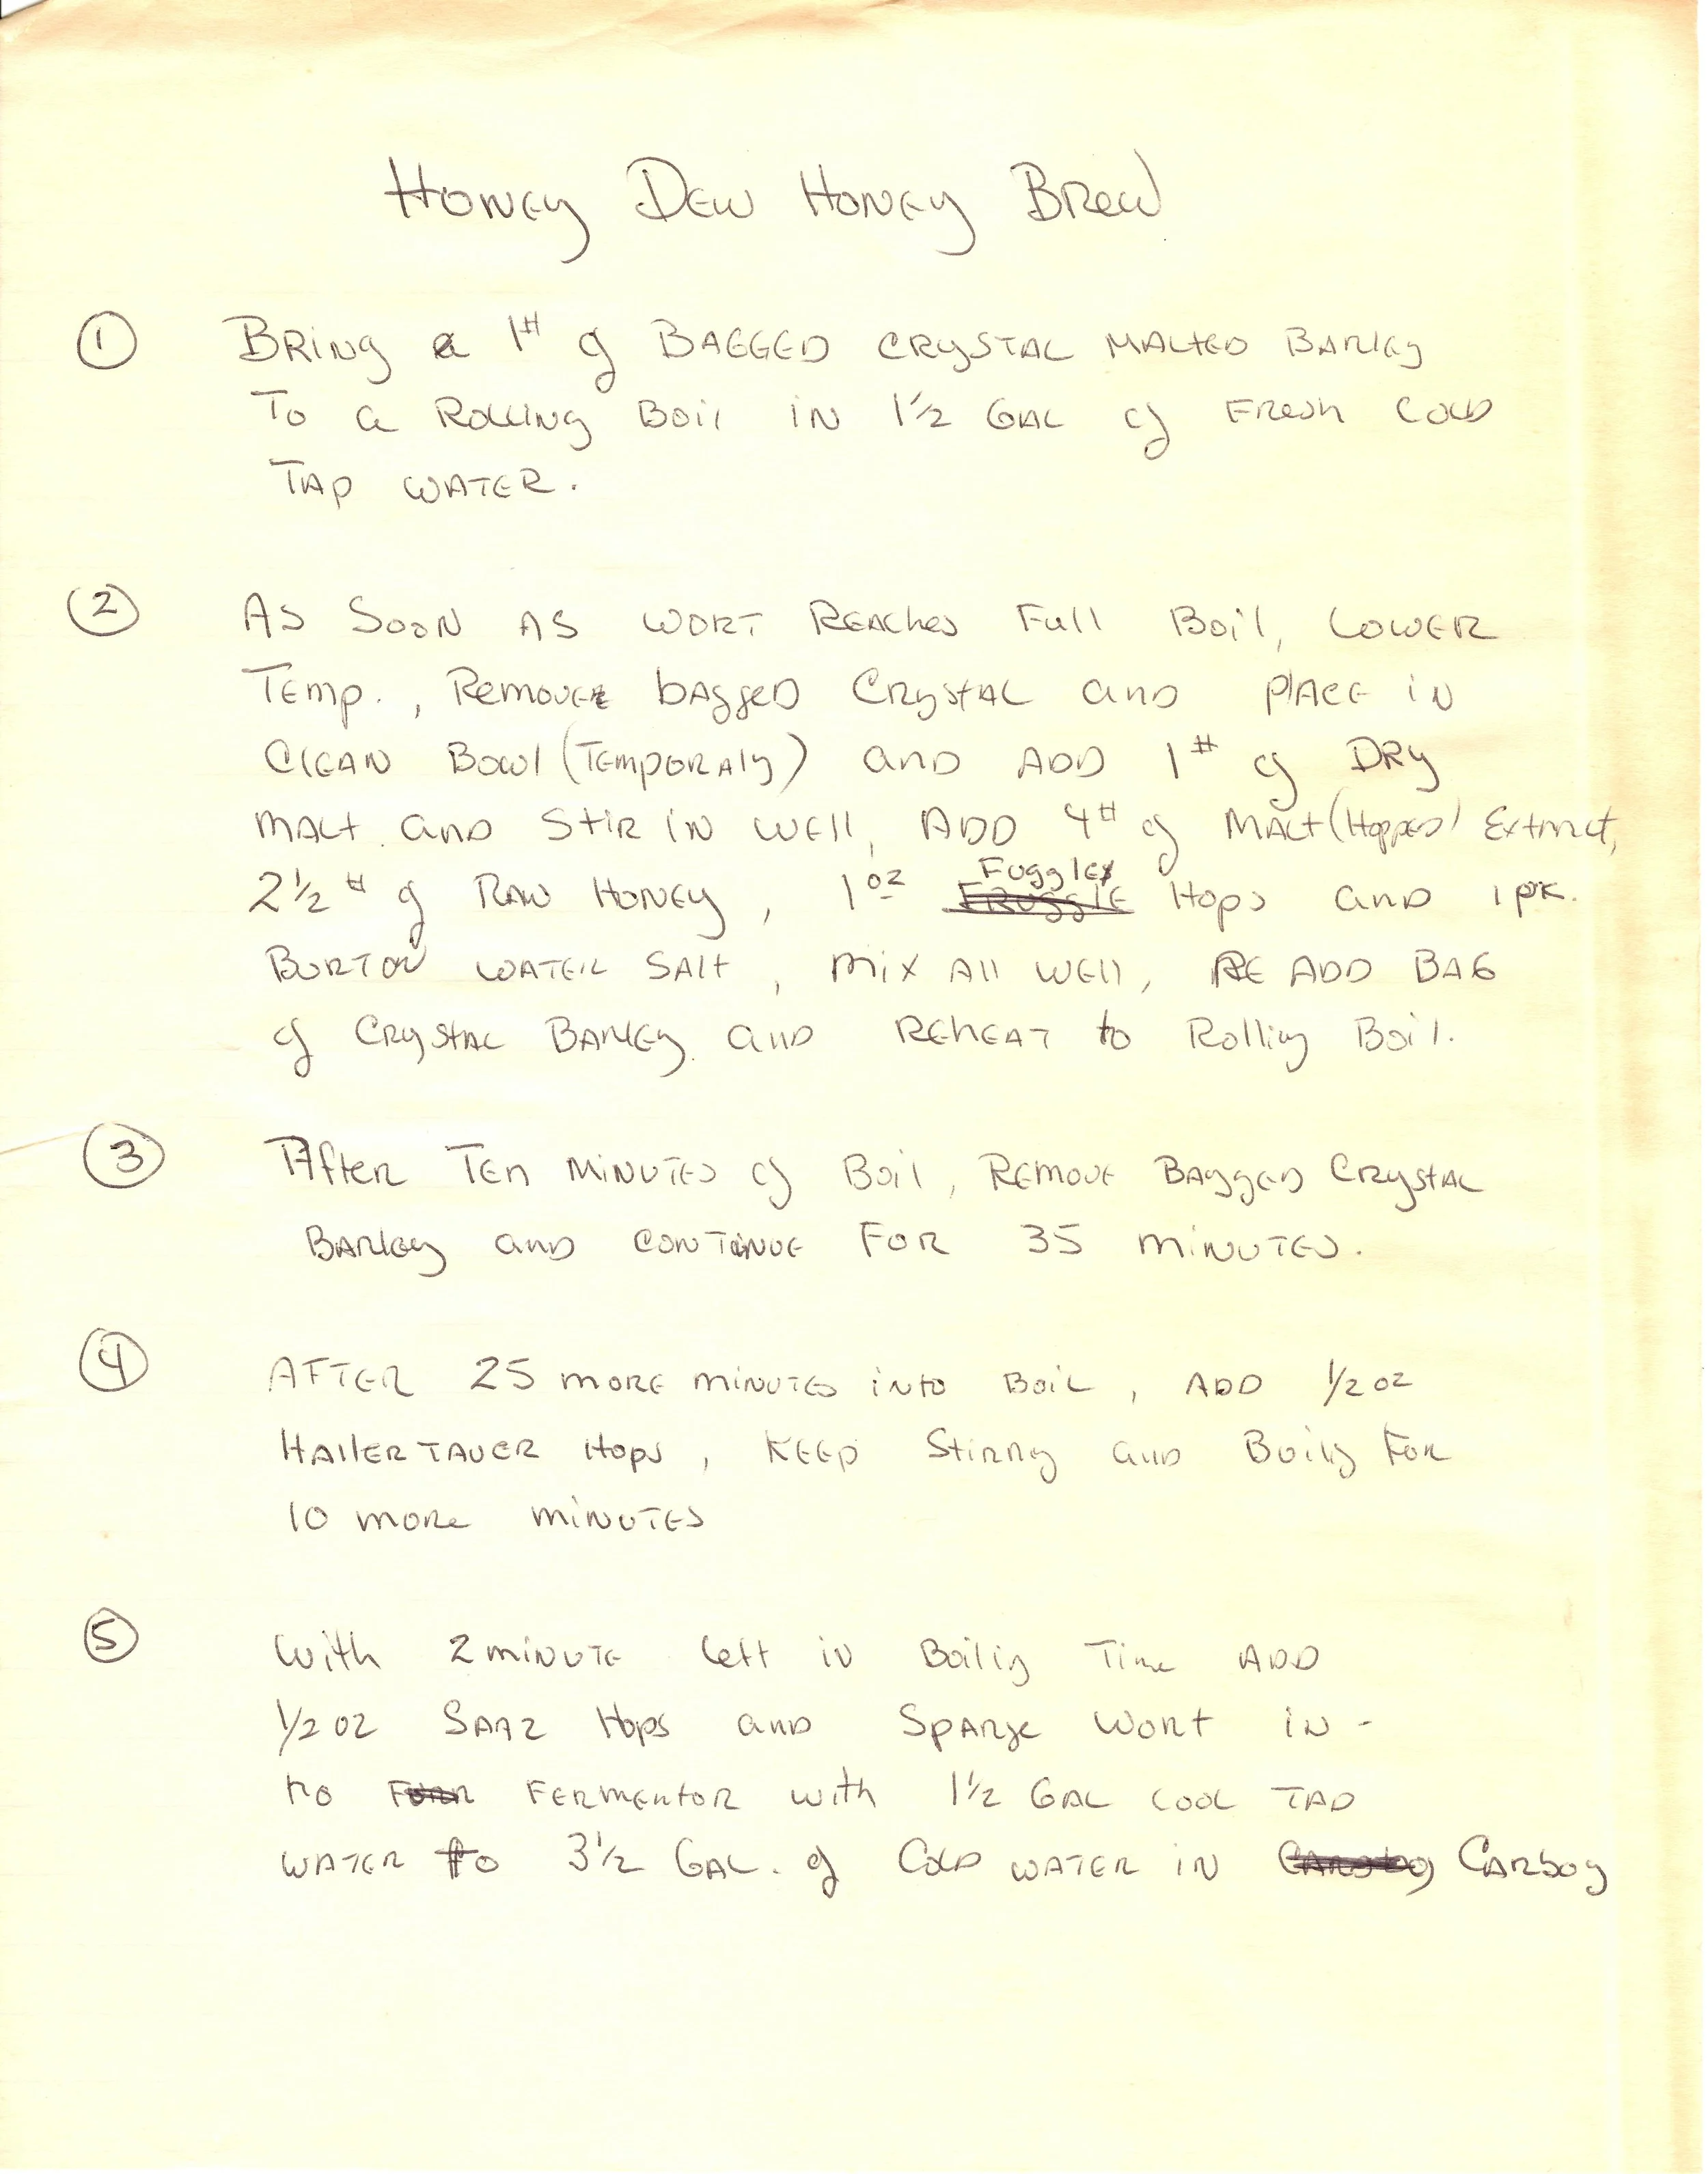 Honey Dew Honey Brew
① Bring a 1# of BAGGED CRYSTAL MALTED BARLEY
To a Rolling Boil in 1½ GAL of FRESH COLD
TAP WATER.
② AS SOON AS WORT REACHES Full Boil, LOWER
TEMP., REMOVE bAggED CRYSTAL and PlACE iN
ClEAN Bowl (TEMPORALY) and ADD 1# of DRY
MALT and StiR IN WEll, ADD 4# of MALT (HOPPED) Extract,
2½# of RAW HONEY, 1oz Fuggles Hops and 1 pk.
BURTON WATER SALT, Mix All WEll, RE ADD BAG
of CRYSTAL BARLEY and REHEAT to Rolling Boil.
③ After TEN MINUTES of Boil, REMOVE BAggED CRYSTAL
BARLEY and CONTINUE FOR 35 MINUTES.
④ AFTER 25 MORE MINUTES into BOIL, ADD 1/2 OZ
HAllERTAUER Hops, KEEP Stirring and Boiling FOR
10 MORE MINUTES
⑤ With 2 MINUTE left in Boiling Time ADD
1/2 OZ SAAZ Hops and SPARge WORT IN-
to FERMENTOR with 1½ GAL COOL TAP
WATER to 3½ GAL. of COLD WATER IN CARBOY